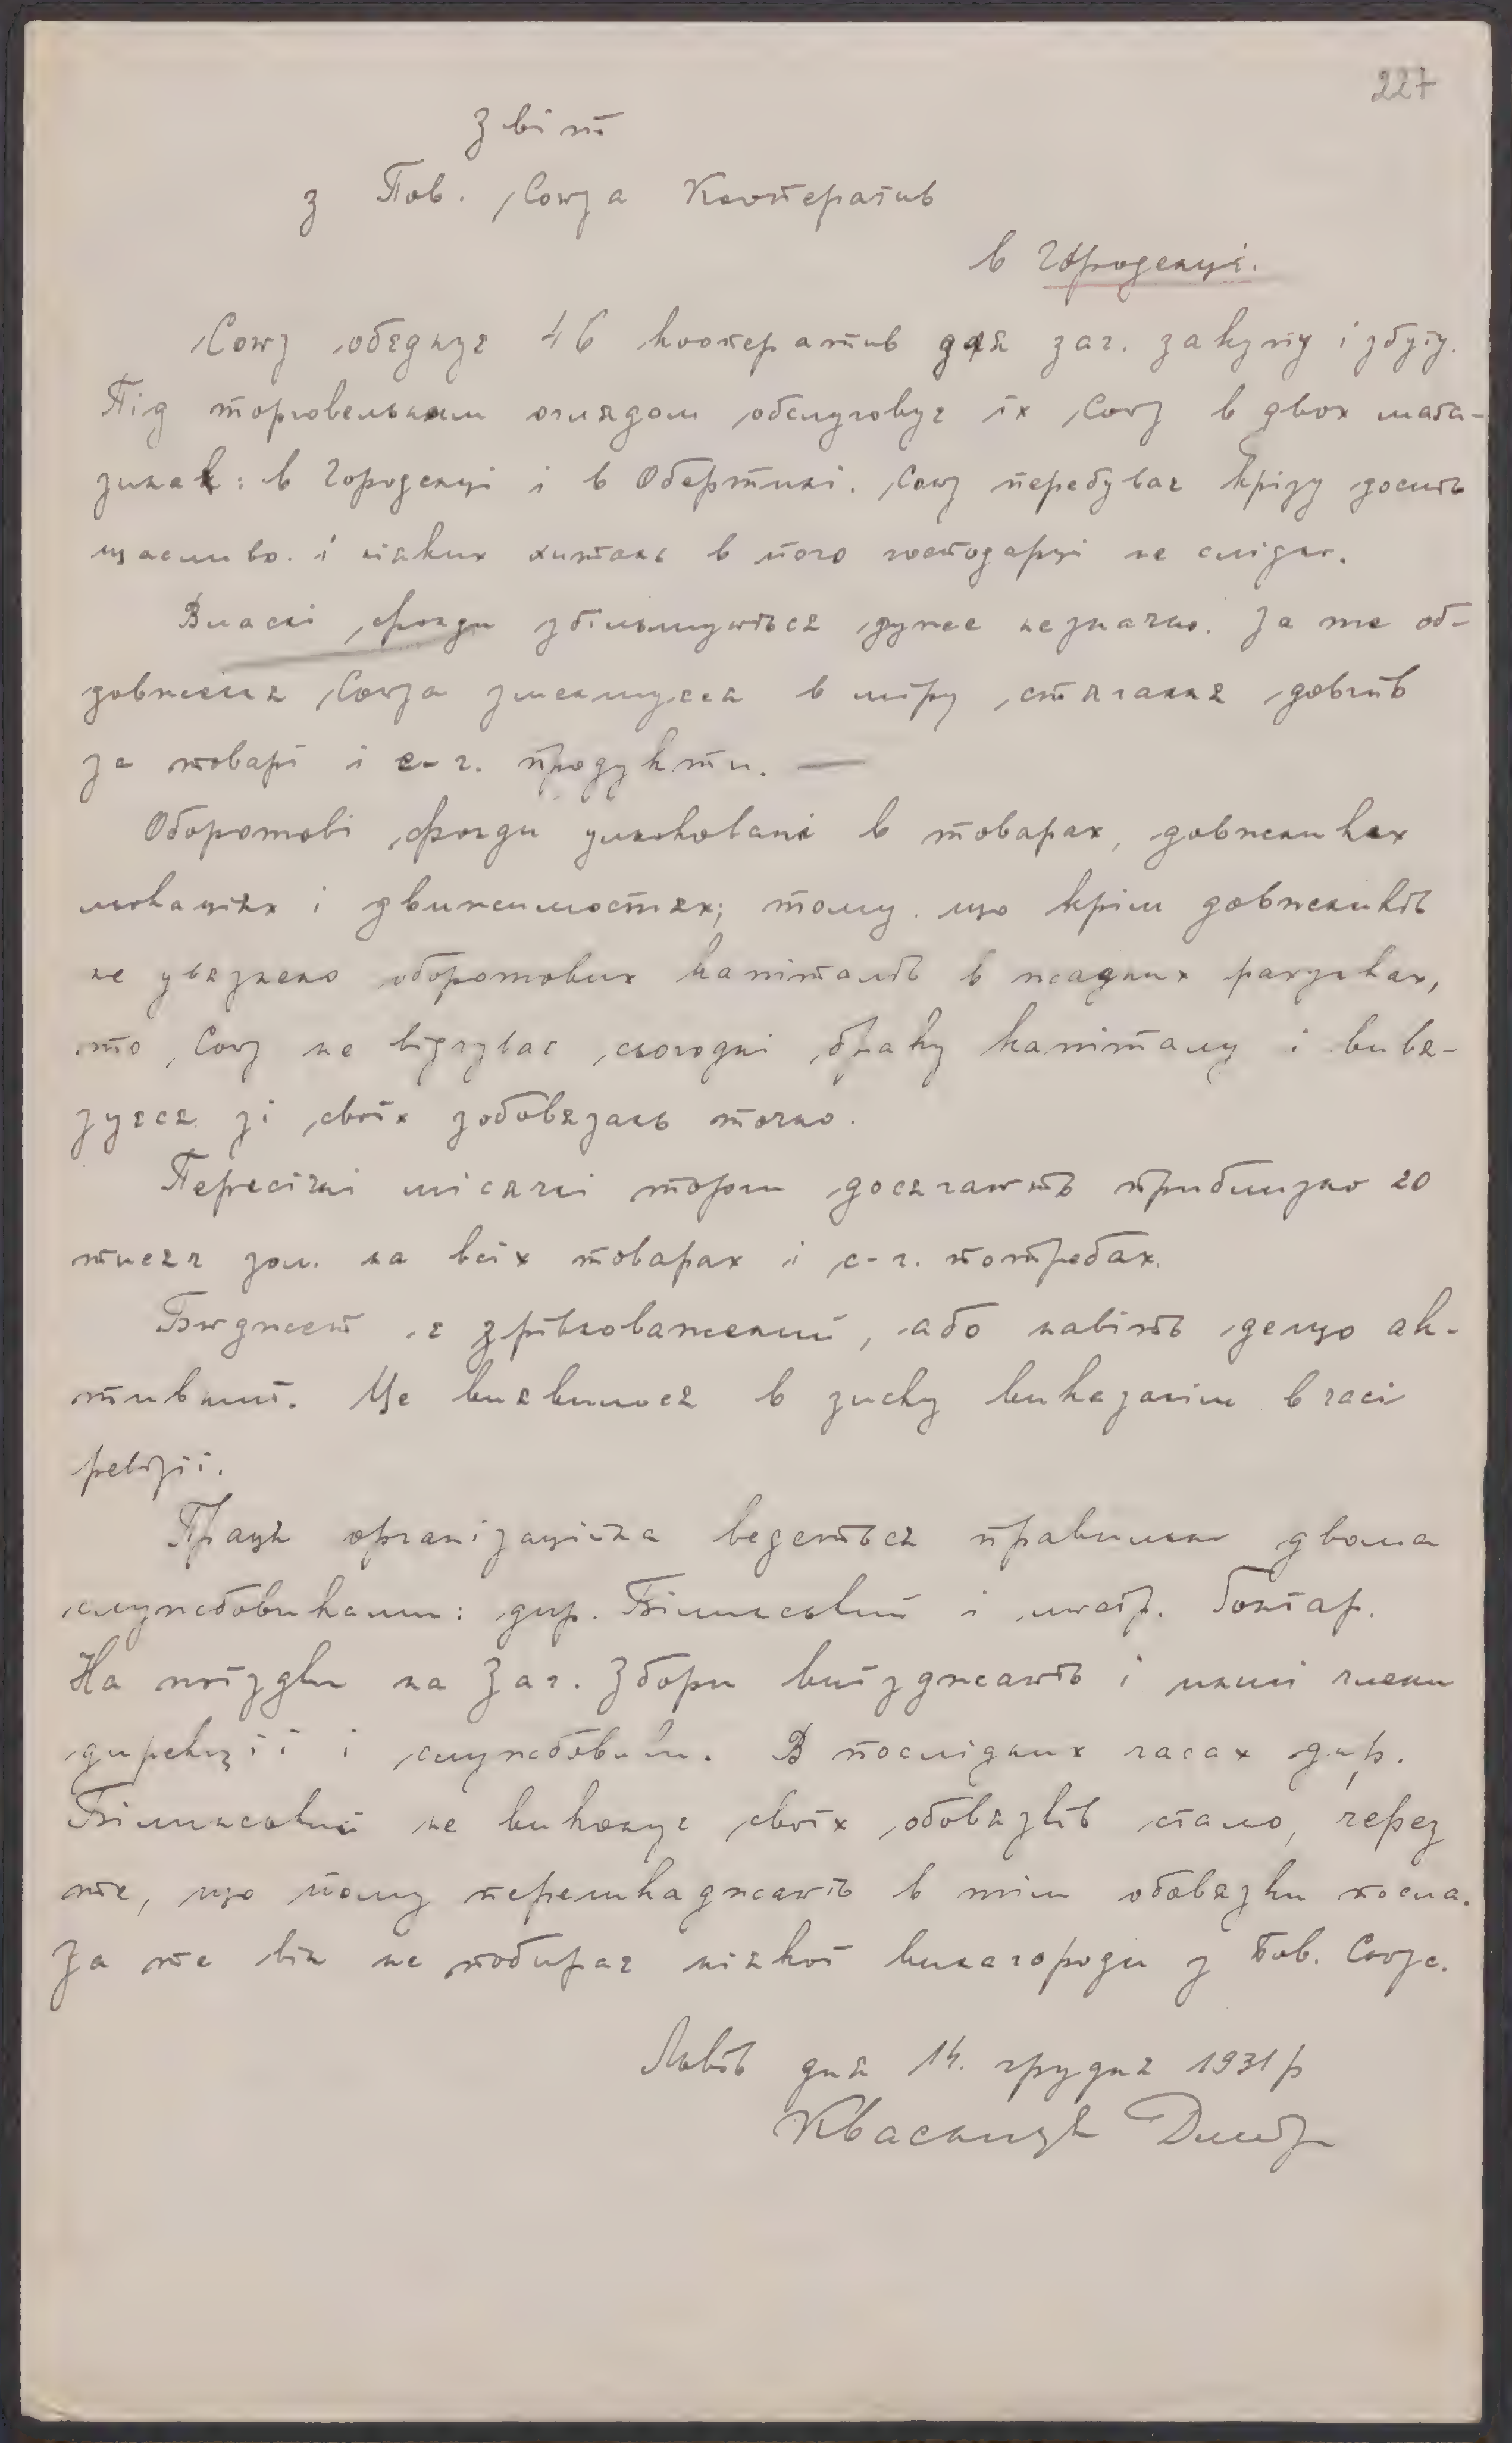 227
Звіт
з Пов. Союза Кооператив
в Городенці.
Союз обєднує 46 кооператив для заг. закупу і збуту.
Під торговельним оглядом обслуговує їх Союз в двох мага-
зинах: в Городенці і в Обертині. Союз перебуває крізу досить
щасливо. і ніяких хитань в його господарці не слідно.
Власні фонди збільшуються дуже незначно. За те об-
довження Союза зменшуєся в міру стягання довгів
за товарі і с-г. продукти. —
Оборотові фонди ульоковані в товарах, довжниках
льокаціях і движимостях; тому що крім довжників
не увязнено оборотових капіталів в жадних рахунках,
то Союз не відчуває сьогодні браку капіталу і вивя-
зуєся зі своїх зобовязань точно.
Пересічні місячні торги досягають приблизно 20
тисяч зол. на всіх товарах і с-г. потребах.
Бюджет є зрівноважений, або навіть дещо ак-
тивний. Це виявилося в зиску виказанім в часі
ревізії.
Праця організаційна ведеться правильно двома
службовиками: дир. Білинський і люстр.
На поїздки на Заг. Збори виїзджають і инші члени
дирекції і службовики. В послідних часах дир.
Білинський не виконує своїх обовязків стало, через
те, що йому перешкаджають в тім обовязки посла.
За те він не побирає ніякої винагороди з Пов. Союза.
Львів дня 14. грудня 1931 р
Квасниця Дмитр